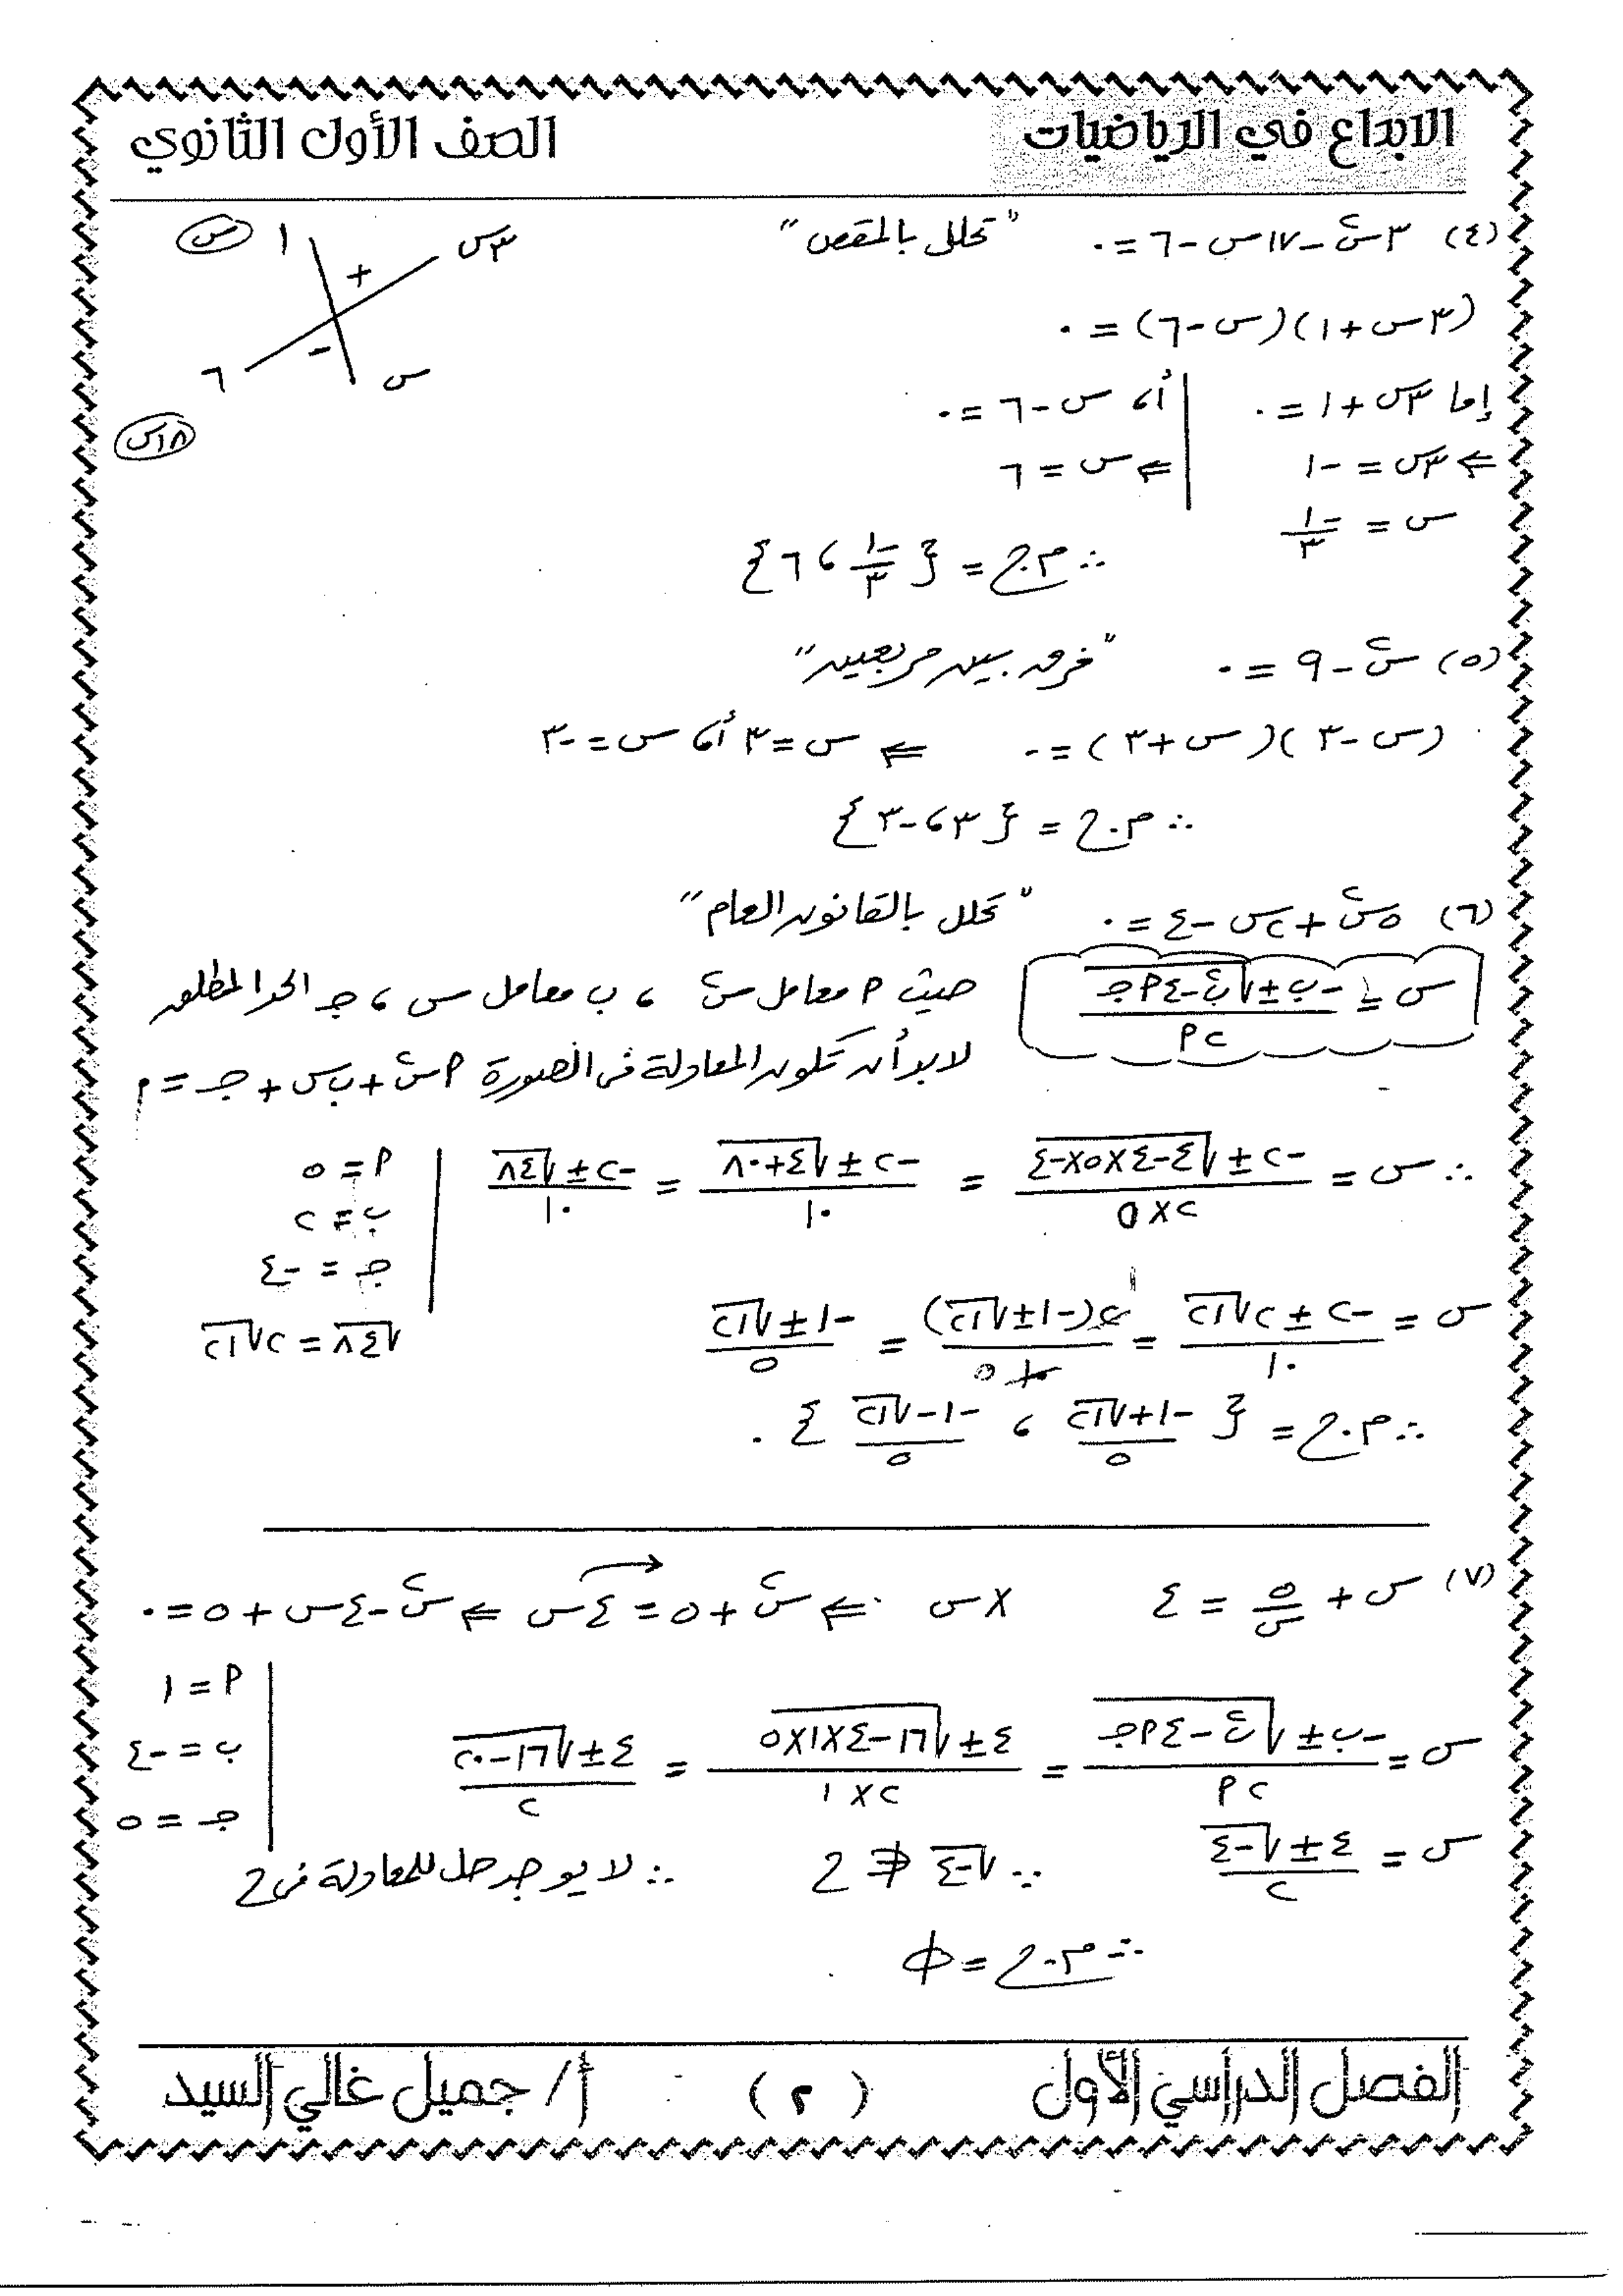 الابداع في الرياضيات الصف الأول الثانوي
(٤) ٣س٢ - ١٧س - ٦ = ٠ "تحلل بالمقص"
٣س ١ س
+
-
س ٦
١٨س
(٣س + ١)(س - ٦) = ٠
إما ٣س + ١ = ٠ أ، س - ٦ = ٠
⇐ ٣س = -١ ⇐ س = ٦
س = -١/٣
∴ م.ح = {-١/٣ ، ٦}
(٥) س٢ - ٩ = ٠ "فرق بين مربعين"
(س - ٣)(س + ٣) = ٠ ⇐ س = ٣ أ، س = -٣
∴ م.ح = {٣ ، -٣}
(٦) ٥س٢ + ٢س - ٤ = ٠ "تحلل بالقانون العام"
س = (-ب ± √(ب٢ - ٤أجـ)) / ٢أ
حيث أ معامل س٢ ، ب معامل س ، جـ الحد المطلق
لابد أن تكون المعادلة فى الصورة أس٢ + ب س + جـ = ٠
∴ س = (-٢ ± √(٤ - ٤×٥×-٤)) / ٢×٥ = (-٢ ± √(٤ + ٨٠)) / ١٠ = (-٢ ± √٨٤) / ١٠
أ = ٥
ب = ٢
جـ = -٤
س = (-٢ ± ٢√٢١) / ١٠ = ٢(-١ ± √٢١) / ١٠ ٥ = (-١ ± √٢١) / ٥
√٨٤ = ٢√٢١
∴ م.ح = {(-١ + √٢١) / ٥ ، (-١ - √٢١) / ٥}
(٧) س + ٥/س = ٤ × س ⇐ س٢ + ٥ = ٤س ⇐ س٢ - ٤س + ٥ = ٠
أ = ١
ب = -٤
جـ = ٥
س = (-ب ± √(ب٢ - ٤أجـ)) / ٢أ = (٤ ± √(١٦ - ٤×١×٥)) / ٢×١ = (٤ ± √(١٦ - ٢٠)) / ٢
س = (٤ ± √-٤) / ٢ ∵ √-٤ ∉ ح ∴ لا يوجد حل للمعادلة فى ح
∴ م.ح = ф
الفصل الدراسي الأول (٢) أ/ جميل غالي السيد